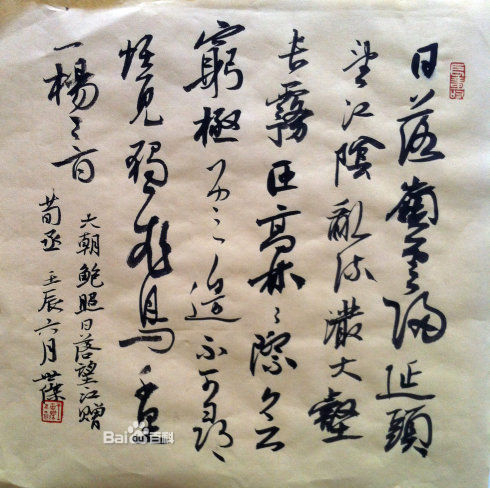 日落嶺雲歸延頭
望江陰亂流灇大壑
長霧匝高林〻際無
窮極雲邊不可尋
惟見獨飛鳥千里
一楊音
六朝鮑照日落望江贈
荀丞 壬辰六月 世傑
Bai du 百科